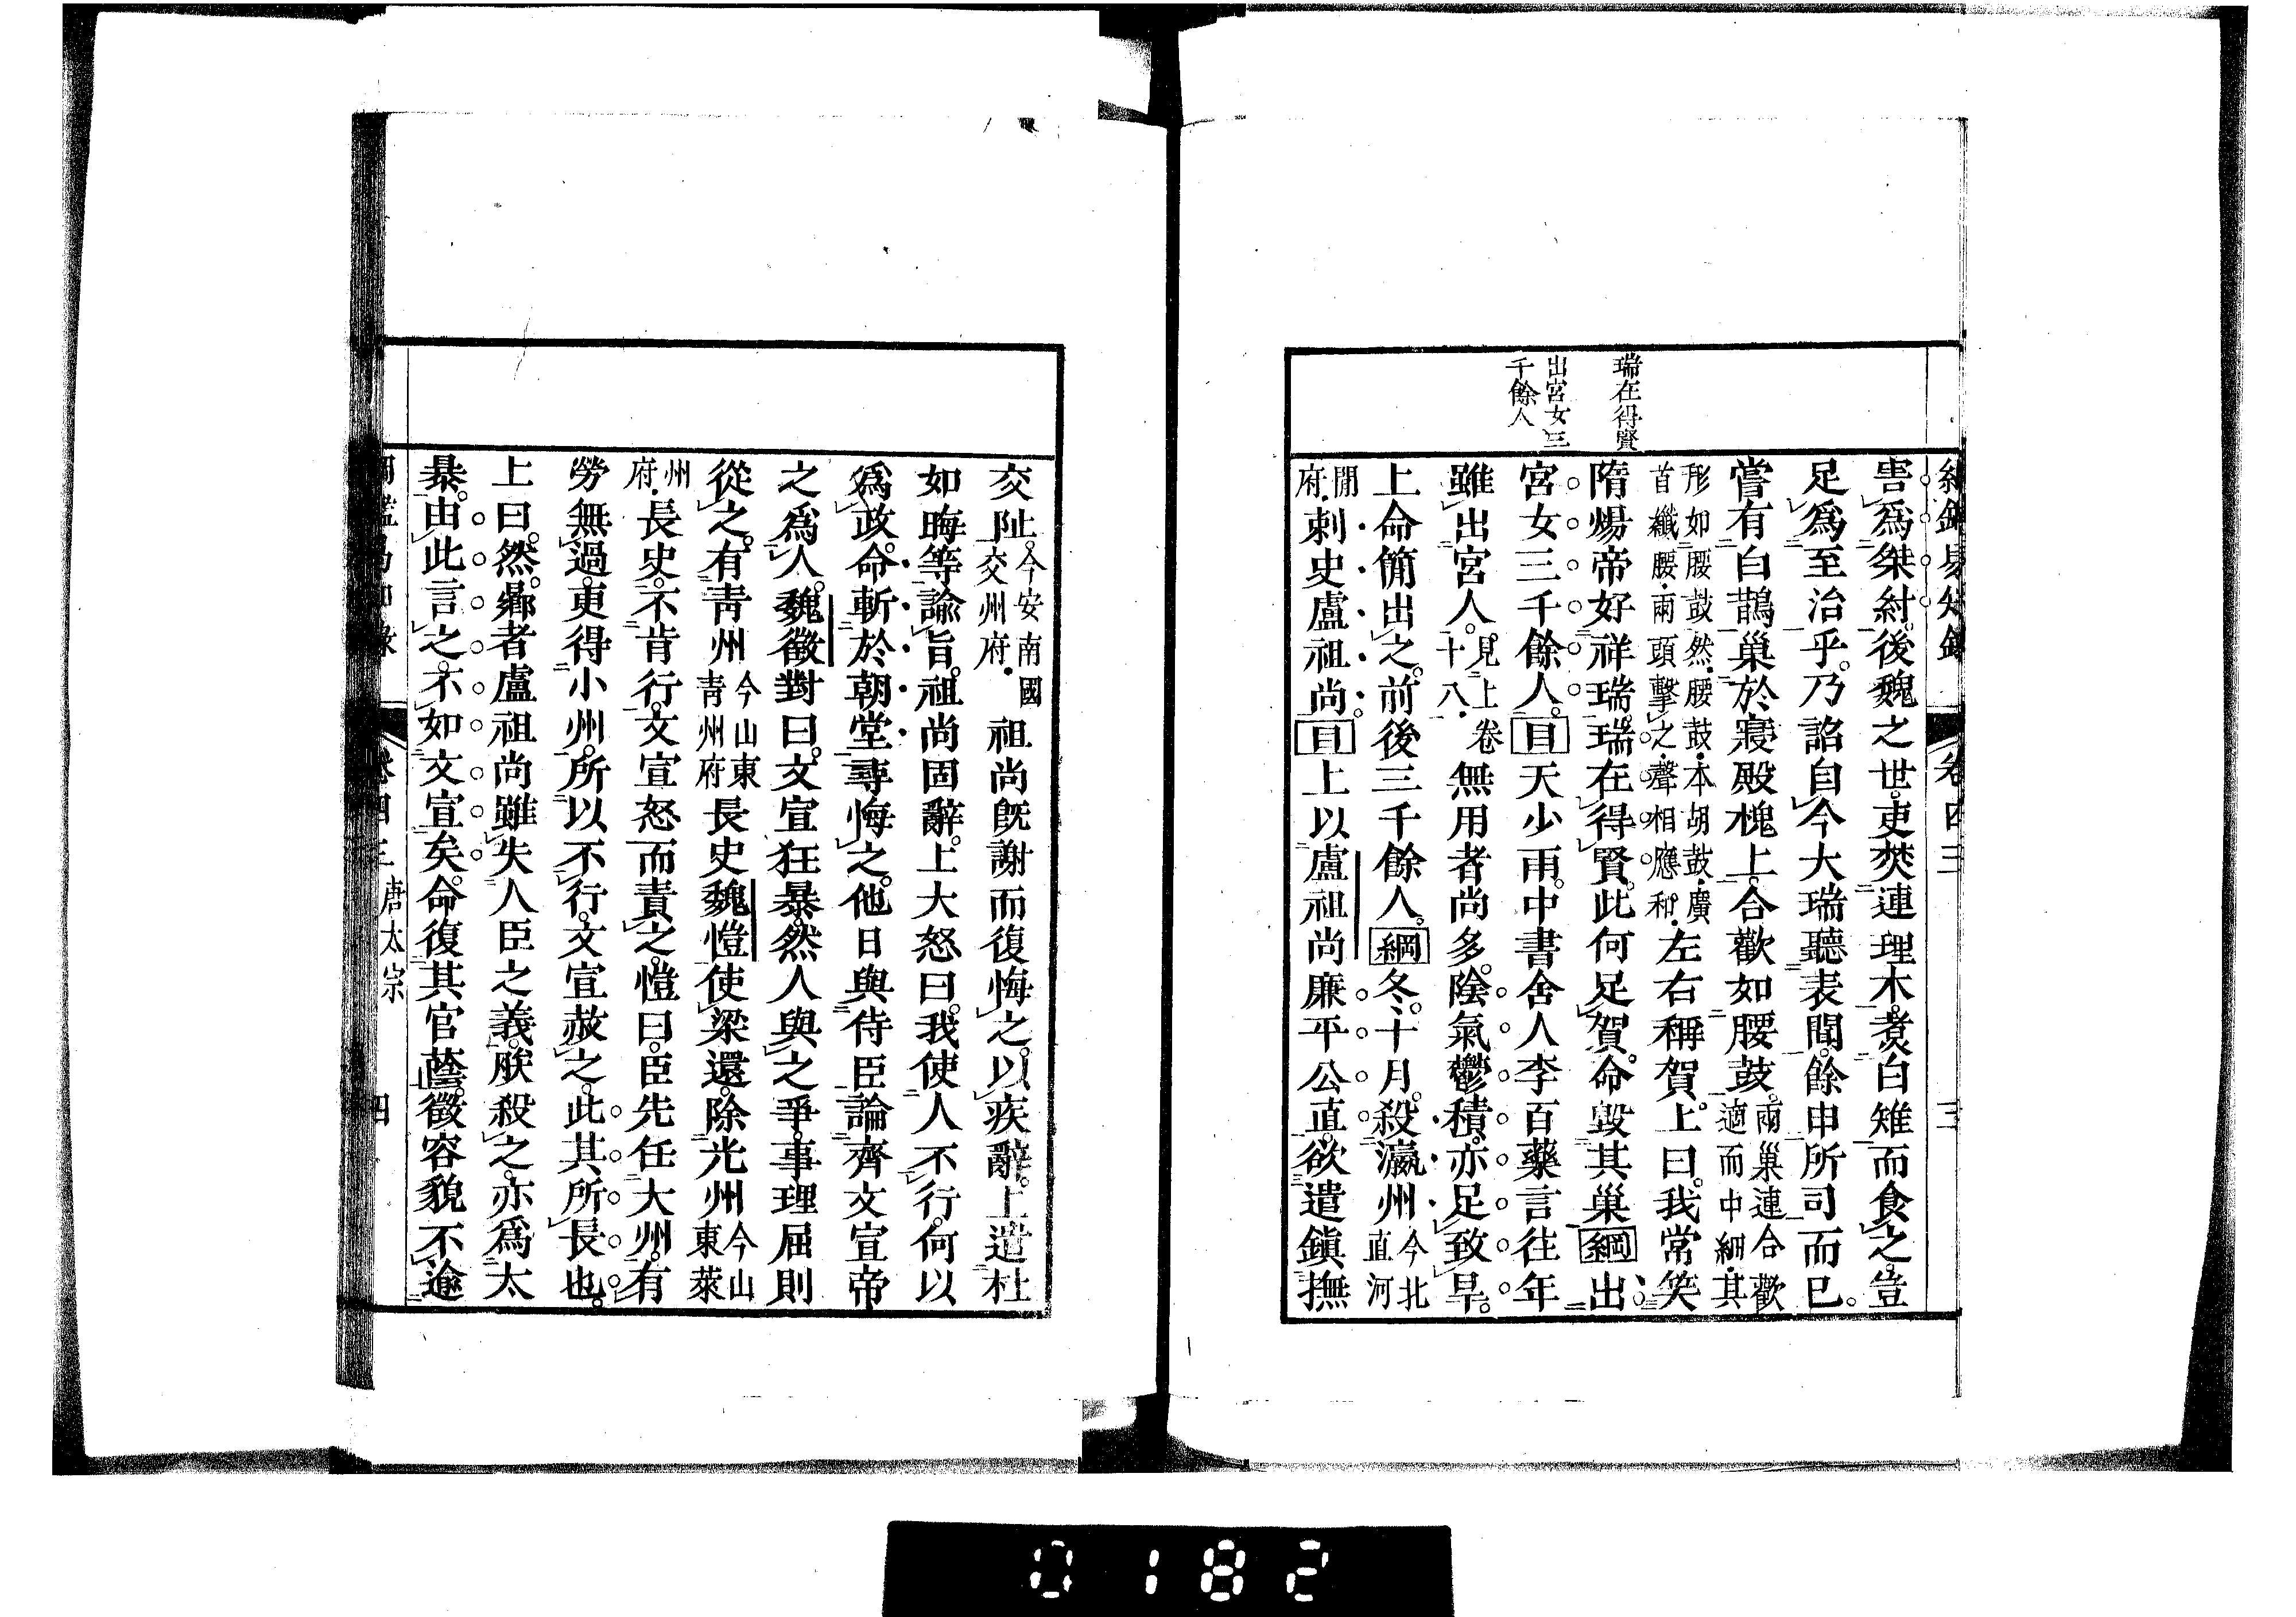 綱鑑易知錄 卷四三 三
瑞在得賢
出宮女三
千餘人
害爲桀紂後魏之世吏焚連理木煮白雉而食之豈
足爲至治乎乃詔自今大瑞聽表聞餘申所司而已
嘗有白鵲巢於寢殿槐上合歡如腰鼓兩巢連合歡適而中細其
形如腰鼓然腰鼓本胡鼓廣首纖腰兩頭擊之聲相應和左右稱賀上曰我常笑
隋煬帝好祥瑞瑞在得賢此何足賀命毀其巢綱出
宮女三千餘人目天少雨中書舍人李百藥言往年
雖出宮人見上卷十八無用者尚多陰氣鬱積亦足致旱
上命簡出之前後三千餘人綱冬十月殺瀛州今北直河
閒府刺史盧祖尚目上以盧祖尚廉平公直欲遣鎭撫
交阯今安南國交州府祖尚既謝而復悔之以疾辭上遣杜
如晦等諭旨祖尚固辭上大怒曰我使人不行何以
爲政命斬於朝堂尋悔之他日與侍臣論齊文宣帝
之爲人魏徵對曰文宣狂暴然人與之爭事理屈則
從之有靑州今山東靑州府長史魏愷使梁還除光州今山東萊
州府長史不肯行文宣怒而責之愷曰臣先任大州有
勞無過更得小州所以不行文宣赦之此其所長也
上曰然鄕者盧祖尚雖失人臣之義朕殺之亦爲太
暴由此言之不如文宣矣命復其官蔭徵容貌不逾
綱鑑易知錄 卷四三 唐太宗 四
0182